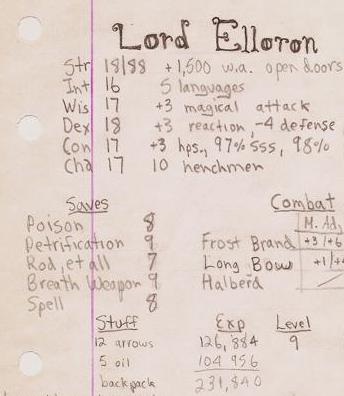 Lord Elloron
Str 18/88 +1,500 w.a. open doors
Int 16 5 languages
Wis 17 +3 magical attack
Dex 18 +3 reaction, -4 defense
Con 17 +3 hps., 97% SSS, 98%
Cha 17 10 henchmen
Saves
Poison 8
Petrification 9
Rod, et all 7
Breath Weapon 9
Spell 8
Combat
M. Adj
Frost Brand +3/+6
Long Bow +1/+
Halberd
Stuff
12 arrows
5 oil
backpack
Exp
126,884
104 956
231,840
Level
9